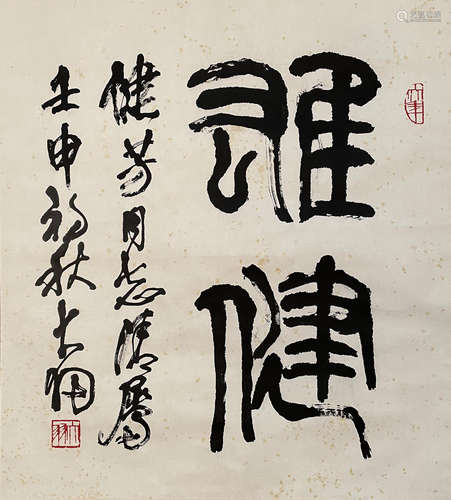 雄健
健芳同志清属
壬申初秋大翔